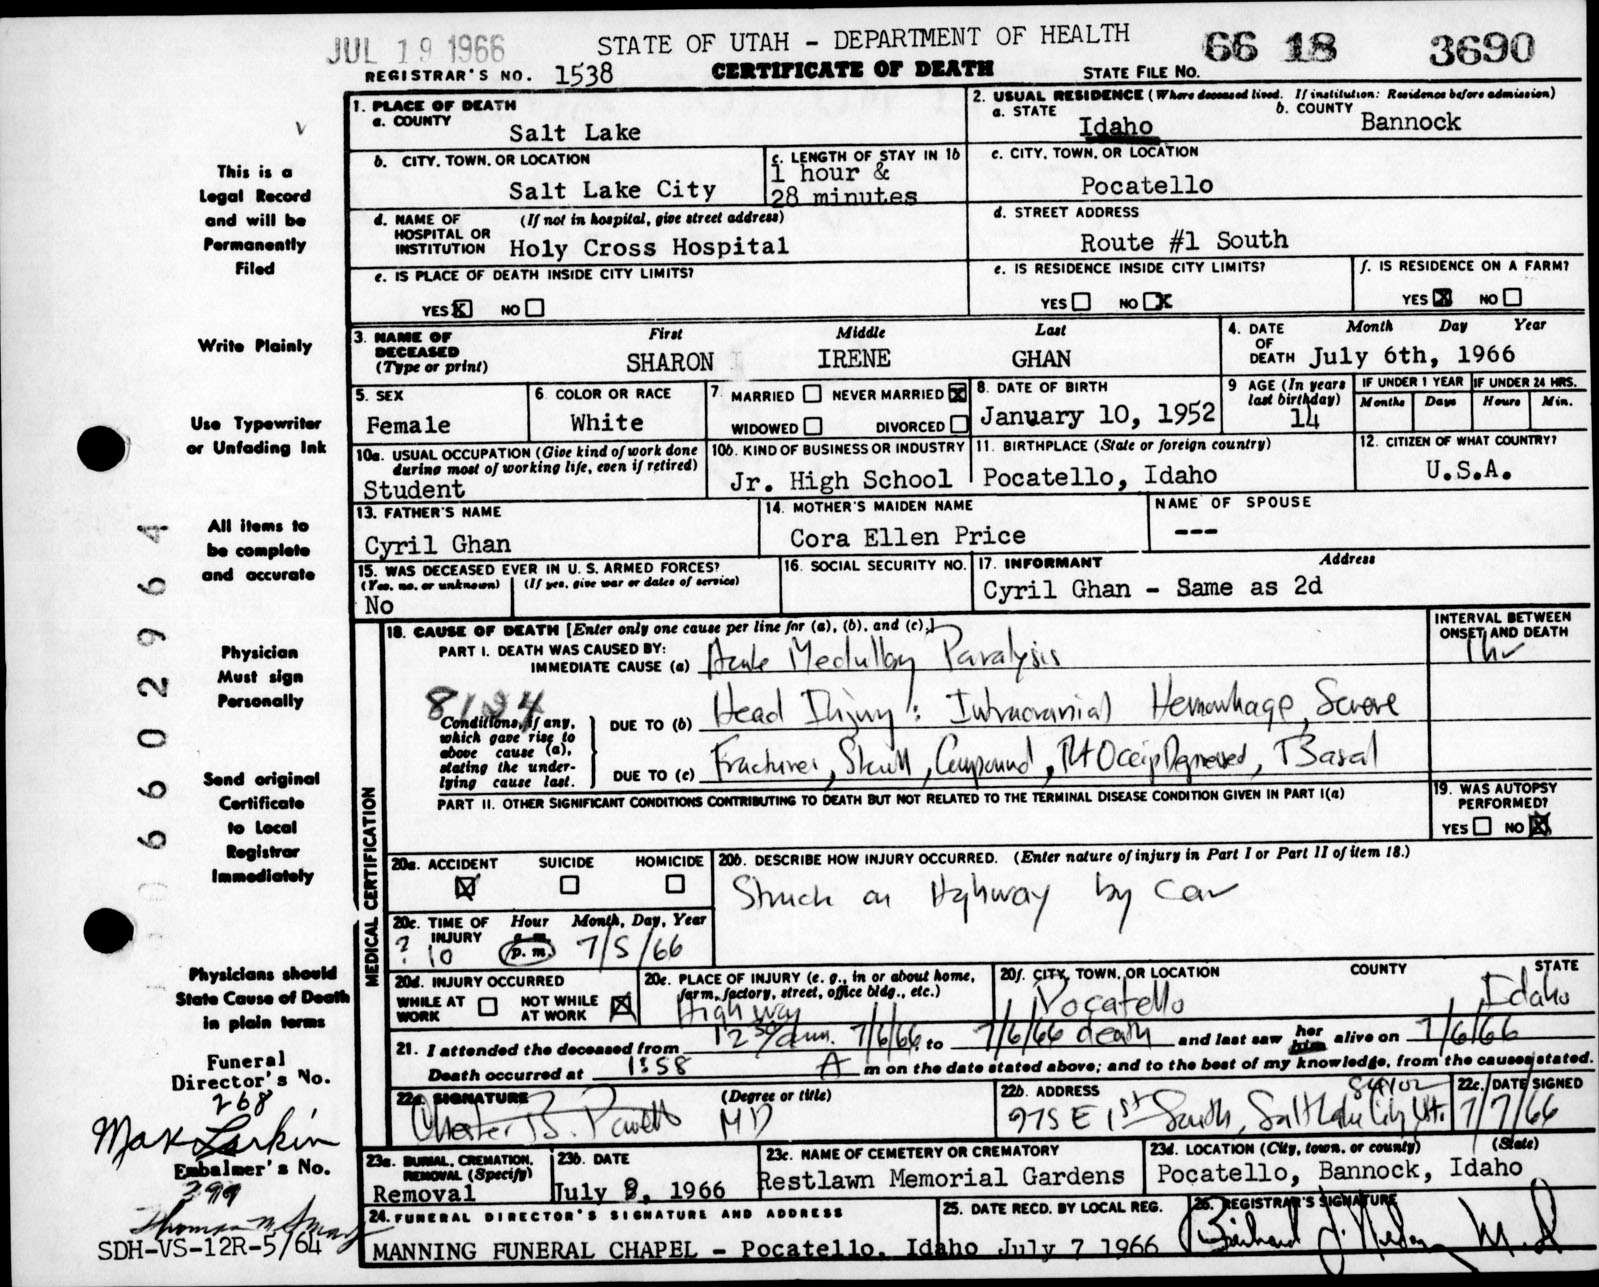 JUL 19 1966
STATE OF UTAH - DEPARTMENT OF HEALTH
66 18 3690
REGISTRAR'S NO. 1538
CERTIFICATE OF DEATH
STATE FILE NO.
1. PLACE OF DEATH
a. COUNTY
Salt Lake
2. USUAL RESIDENCE (Where deceased lived. If institution: Residence before admission)
a. STATE
Idaho
b. COUNTY
Bannock
b. CITY, TOWN, OR LOCATION
Salt Lake City
c. LENGTH OF STAY IN 1b
1 hour &
28 minutes
c. CITY, TOWN, OR LOCATION
Pocatello
d. NAME OF HOSPITAL OR INSTITUTION
(If not in hospital, give street address)
Holy Cross Hospital
d. STREET ADDRESS
Route #1 South
e. IS PLACE OF DEATH INSIDE CITY LIMITS?
YES X NO
e. IS RESIDENCE INSIDE CITY LIMITS?
YES NO X
f. IS RESIDENCE ON A FARM?
YES X NO
3. NAME OF DECEASED
(Type or print)
First Middle Last
SHARON IRENE GHAN
4. DATE OF DEATH
Month Day Year
July 6th, 1966
5. SEX
Female
6. COLOR OR RACE
White
7. MARRIED NEVER MARRIED X
WIDOWED DIVORCED
8. DATE OF BIRTH
January 10, 1952
9 AGE (In years last birthday)
14
IF UNDER 1 YEAR
Months Days
IF UNDER 24 HRS.
Hours Min.
10a. USUAL OCCUPATION (Give kind of work done during most of working life, even if retired)
Student
10b. KIND OF BUSINESS OR INDUSTRY
Jr. High School
11. BIRTHPLACE (State or foreign country)
Pocatello, Idaho
12. CITIZEN OF WHAT COUNTRY?
U.S.A.
13. FATHER'S NAME
Cyril Ghan
14. MOTHER'S MAIDEN NAME
Cora Ellen Price
NAME OF SPOUSE
---
15. WAS DECEASED EVER IN U. S. ARMED FORCES?
(Yes, no, or unknown) (If yes, give war or dates of service)
No
16. SOCIAL SECURITY NO.
17. INFORMANT Address
Cyril Ghan - Same as 2d
18. CAUSE OF DEATH [Enter only one cause per line for (a), (b), and (c).]
PART I. DEATH WAS CAUSED BY:
IMMEDIATE CAUSE (a) Acute Medullary Paralysis
INTERVAL BETWEEN ONSET AND DEATH
1 hr
8124
Conditions, if any, which gave rise to above cause (a), stating the underlying cause last.
DUE TO (b) Head Injury: Intracranial Hemorrhage, Severe
DUE TO (c) Fractures, Skull, Compound, Rt Occip Depressed, Basal
PART II. OTHER SIGNIFICANT CONDITIONS CONTRIBUTING TO DEATH BUT NOT RELATED TO THE TERMINAL DISEASE CONDITION GIVEN IN PART I(a)
19. WAS AUTOPSY PERFORMED?
YES NO X
MEDICAL CERTIFICATION
20a. ACCIDENT X SUICIDE HOMICIDE
20b. DESCRIBE HOW INJURY OCCURRED. (Enter nature of injury in Part I or Part II of item 18.)
Struck on Highway by Car
20c. TIME OF INJURY
Hour Month, Day, Year
? 10 p. m. 7/5/66
20d. INJURY OCCURRED
WHILE AT WORK NOT WHILE AT WORK X
20e. PLACE OF INJURY (e. g., in or about home, farm, factory, street, office bldg., etc.)
Highway
20f. CITY, TOWN, OR LOCATION COUNTY STATE
Pocatello Idaho
21. I attended the deceased from 12 30/a.m. 7/6/66, to 7/6/66 death and last saw her him alive on 7/6/66
Death occurred at 1:58 A m on the date stated above; and to the best of my knowledge, from the causes stated.
22a SIGNATURE (Degree or title)
Chester B. Powell MD
22b. ADDRESS
84102
975 E 1st South, Salt Lake City Ut.
22c. DATE SIGNED
7/7/66
23a. BURIAL, CREMATION, REMOVAL (Specify)
Removal
23b. DATE
July 8, 1966
23c. NAME OF CEMETERY OR CREMATORY
Restlawn Memorial Gardens
23d. LOCATION (City, town, or county) (State)
Pocatello, Bannock, Idaho
24. FUNERAL DIRECTOR'S SIGNATURE AND ADDRESS
MANNING FUNERAL CHAPEL - Pocatello, Idaho
25. DATE RECD. BY LOCAL REG.
July 7 1966
26. REGISTRAR'S SIGNATURE
M.D.
This is a
Legal Record
and will be
Permanently
Filed
Write Plainly
Use Typewriter
or Unfading Ink
All items to
be complete
and accurate
Physician
Must sign
Personally
Send original
Certificate
to Local
Registrar
Immediately
Physicians should
State Cause of Death
in plain terms
Funeral
Director's No.
268
Max Larkin
Embalmer's No.
399
SDH-VS-12R-5/64
06602964